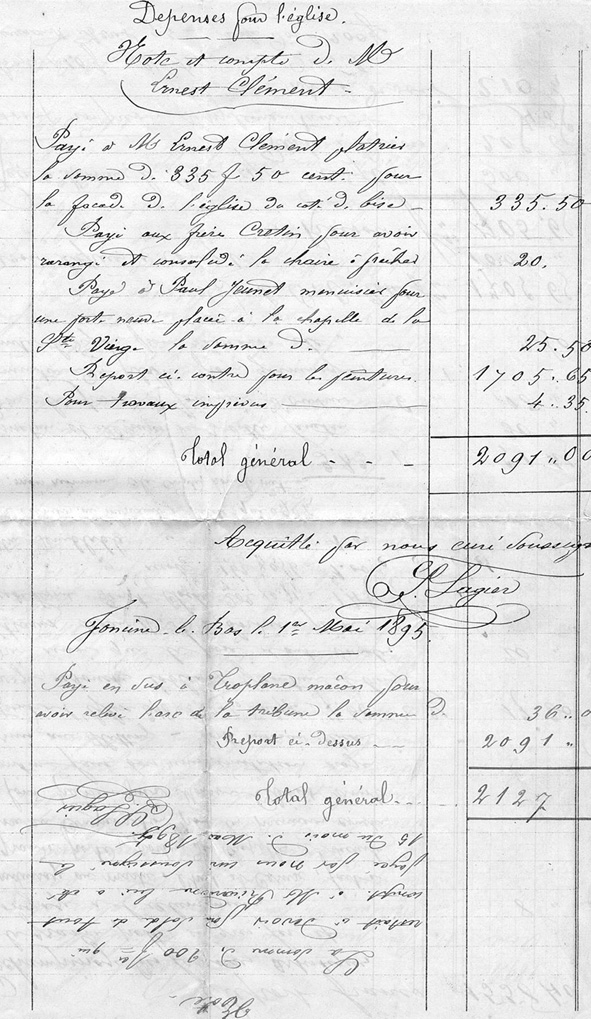 Dépenses pour l'église.
Note et compte de Mr
Ernest Clément
Payé à Mr Ernest Clément platrier
la somme de 335 f 50 cent. pour
la façade de l'église du coté de bise 335.50
Payé aux frère Cretin pour avoir
rarangé et consolidé la chaire à prêcher 20.
Payé à Paul Jeunet menuisier pour
une porte neuve placée à la chapelle de la
Ste Vierge la somme de 25.50
Report ci-contre pour les peintures 1705.65
Pour travaux imprévus 4.35
Total général - - - 2091..00
Acquitté par nous curé soussigné
Lagier
Foncine-le-Bas le 1er Mai 1895
Payé en sus à Troplane mâcon pour
avoir relevé l'arc de la tribune la somme de 36..0
Report ci-dessus 2091..
Total général 2127
Note
La somme de 200 f qui
restait à devoir pour solde de tout
compt. à Mr lui a été
payée par nous curé soussigné le
15 du mois de Mai 1895
Lagier